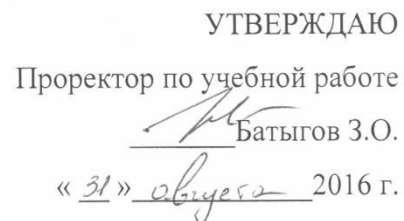 УТВЕРЖДАЮ
Проректор по учебной работе
Батыгов З.О.
« 31 » августа 2016 г.